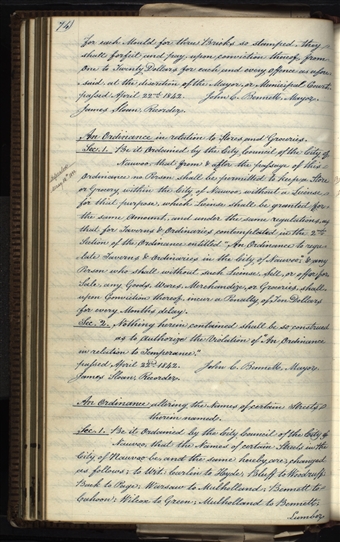 74
for each Mould for those Bricks so stamped, they
shall forfeit and pay, upon conviction thereof, from
One to Twenty Dollars for each and every offence as afore-
said, at the discretion of the Mayor, or Municipal Court.
passed April 22nd 1842. John C. Bennett, Mayor.
James Sloan, Recorder.
An Ordinance in relation to Stores and Groceries.
Sec. 1. Be it Ordained by the City Council of the City of
Nauvoo, that from & after the passage of this
Ordinance no Person shall be permitted to keep a Store
or Grocery, within the City of Nauvoo, without a License
for that purpose, which License shall be granted for
the same Amount, and under the same regulations, as
that for Taverns & Ordinaries contemplated in the 2nd
Section of the Ordinance entitled "An Ordinance to regu-
late Taverns & Ordinaries in the City of Nauvoo," & any
Person who shall without such License, Sell, or offer for
Sale, any Goods, Wares, Merchandize, or Groceries, shall
upon Conviction thereof, incur a Penalty of Ten Dollars
for every Months delay.
Sec. 2. Nothing herein contained shall be so construed
as to authorize the Violation of "An Ordinance
in relation to Temperance."
passed April 22nd 1842. John C. Bennett, Mayor
James Sloan, Recorder.
An Ordinance altering the Names of certain Streets
therein named.
Sec. 1. Be it Ordained by the City Council of the City of
Nauvoo, that the Names of certain Streets in the
City of Nauvoo be, and the same hereby are, changed
as follows: to Wit: Carlin to Hyde; Bluff to Woodruff;
Back to Page; Warsaw to Mulholland; Bennett to
Cahoon; Wilcox to Green; Mulholland to Bennett;